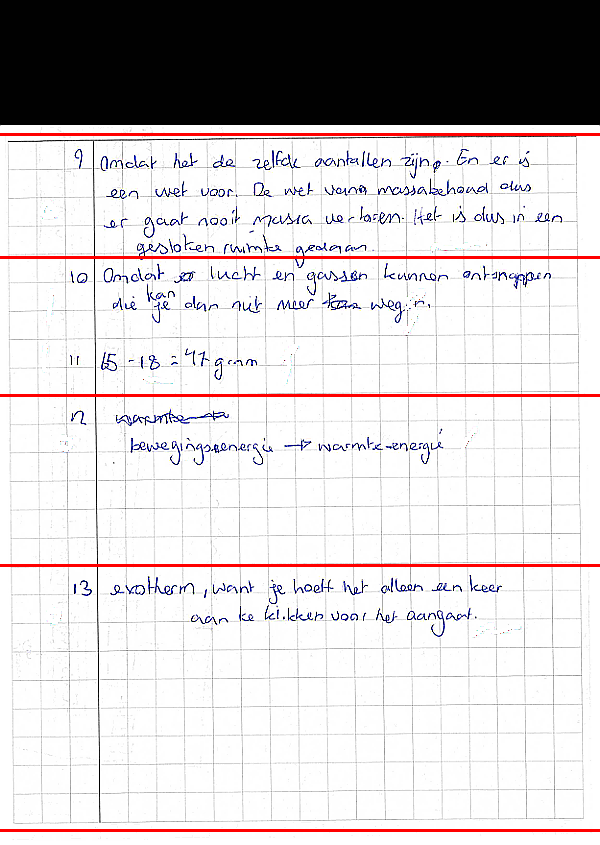 9 Omdat het de zelfde aantallen zijn. En er is
een wet voor. De wet van massabehoud dus
er gaat nooit massa verloren. Het is dus in een
gesloten ruimte gedaan.
10 Omdat er lucht en gassen kunnen ontsnappen
die kan je dan niet meer weg
11 65 - 18 = 47 gram
12 warmte
bewegingsenergie → warmte-energie
13 exotherm, want je hoeft het alleen een keer
aan te klikken voor het aangaat.